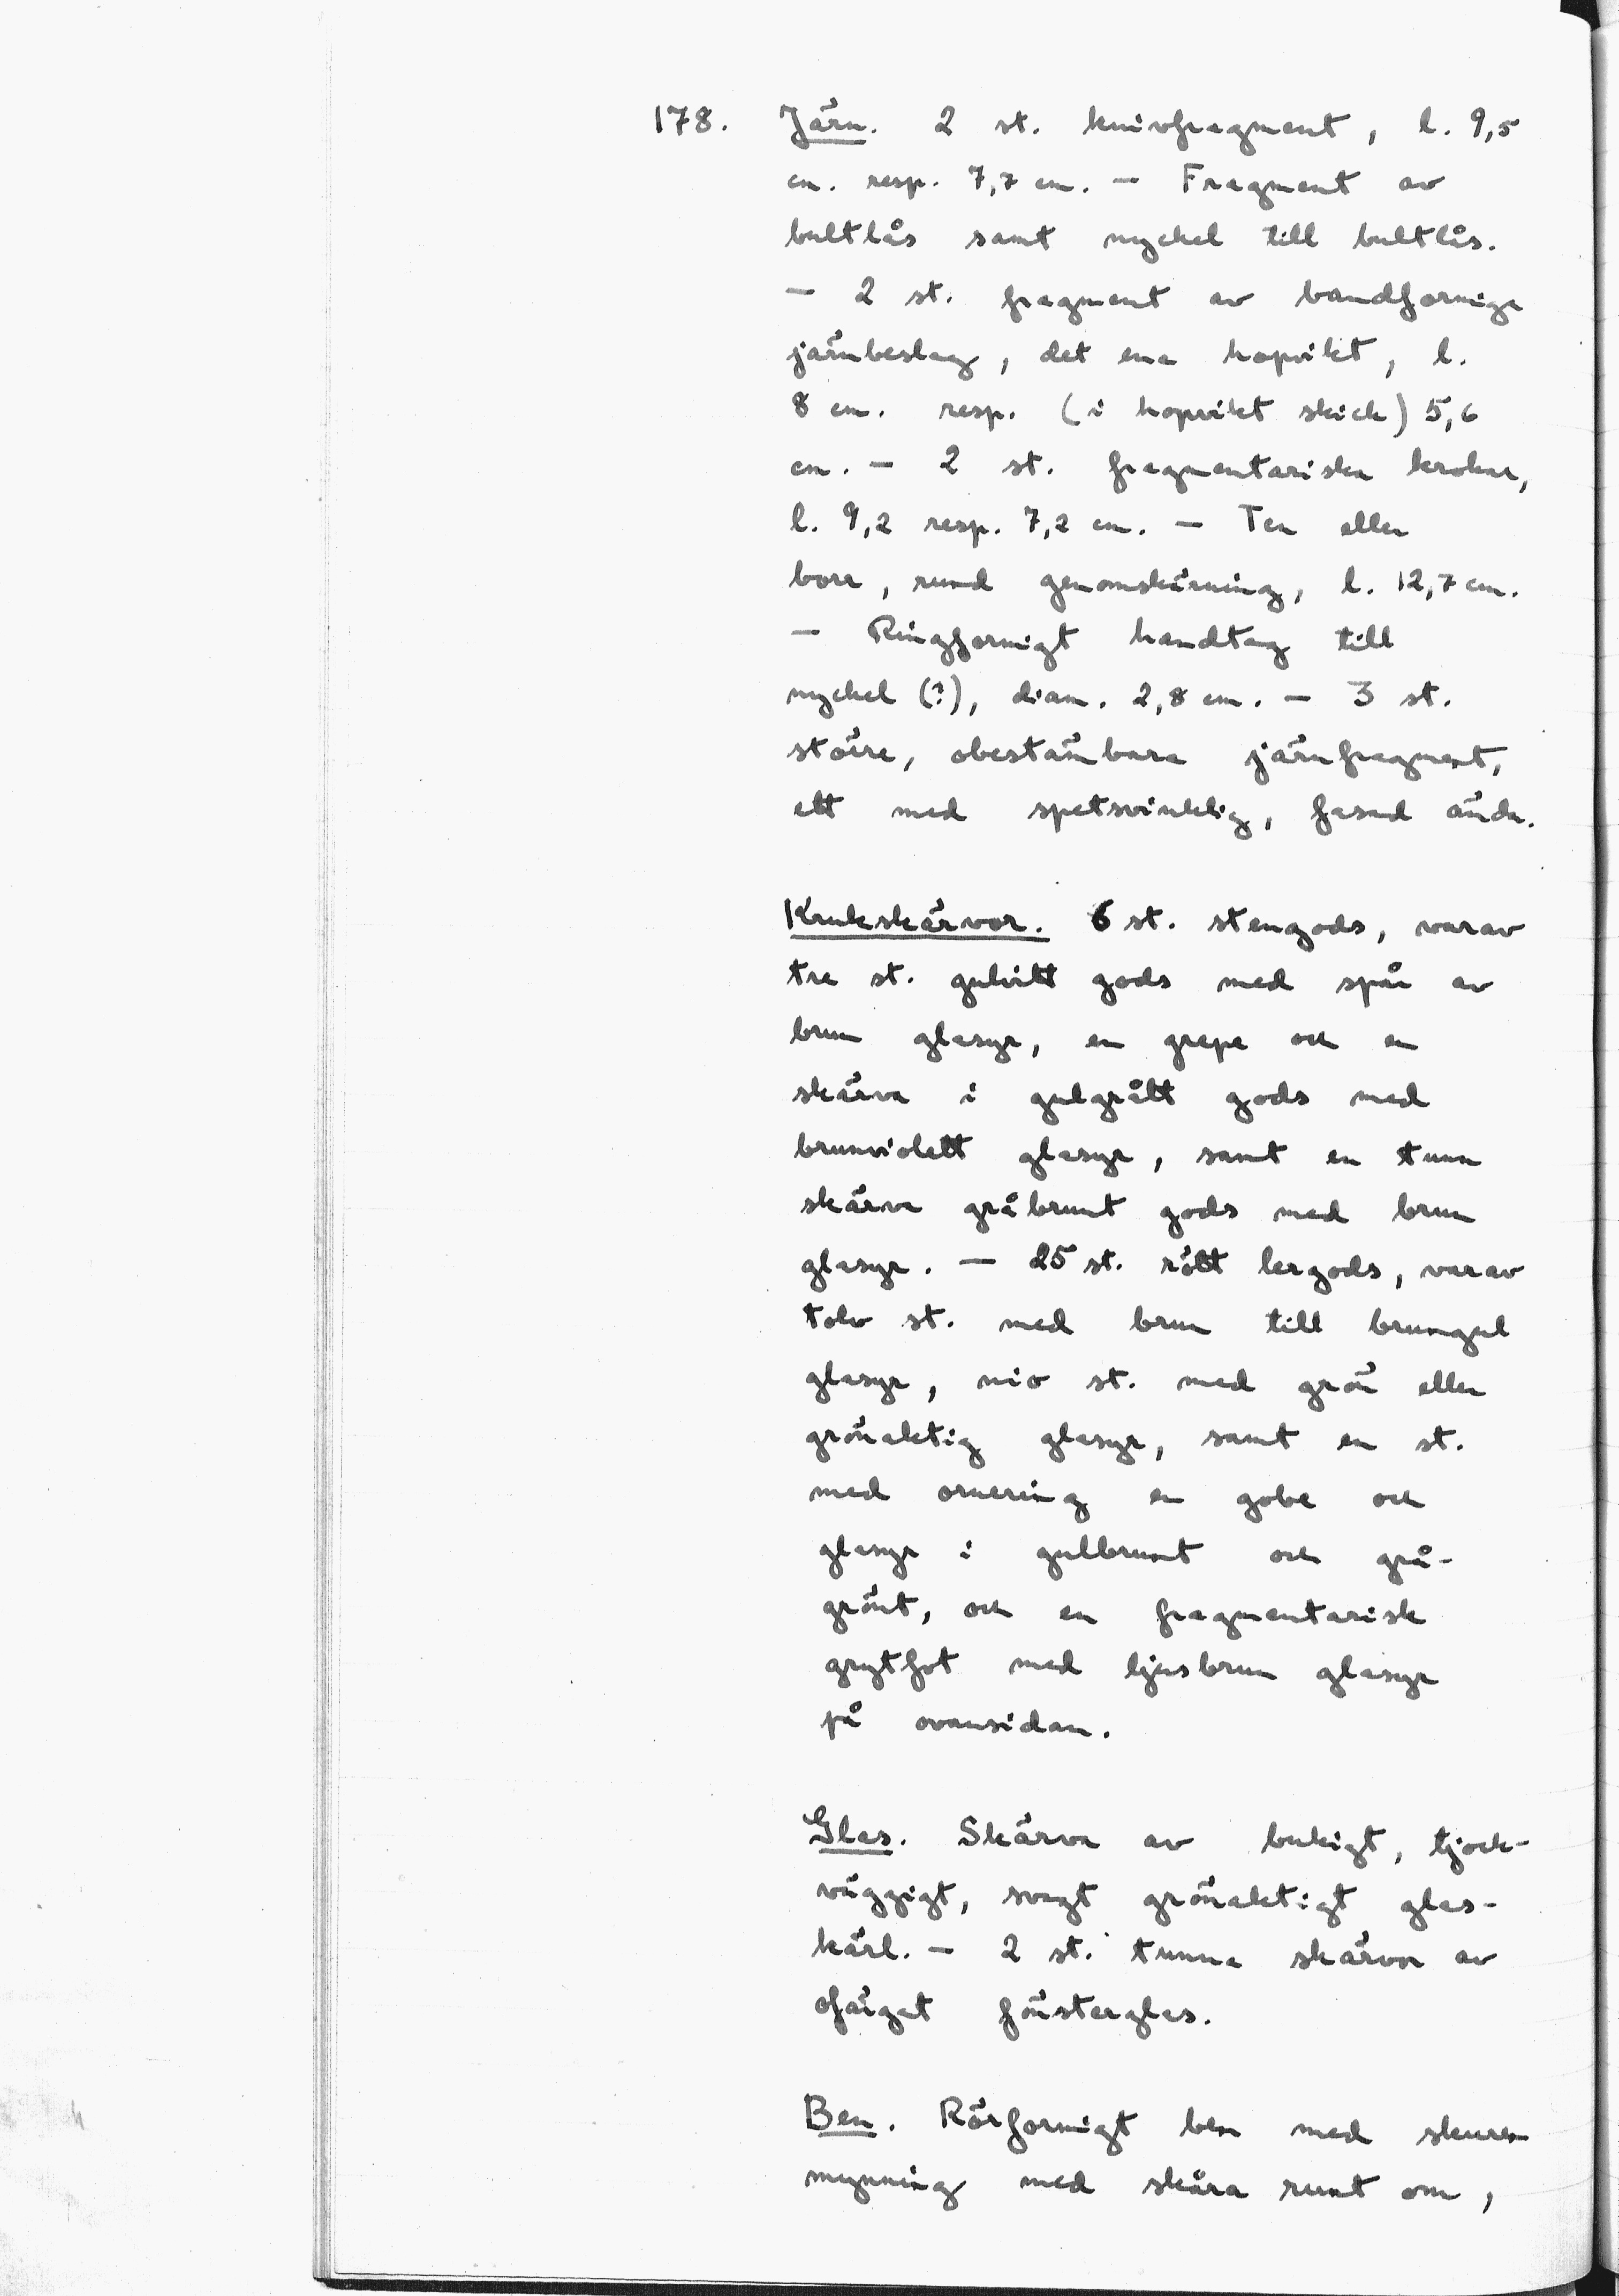 178. Järn. 2 st. knivfragment, l. 9,5
cm. resp. 7,7 cm. — Fragment av
bultlås samt nyckel till bultlås.
— 2 st. fragment av bandformiga
järnbeslag, det ena hopvikt, l.
8 cm. resp. (i hopvikt skick) 5,6
cm. — 2 st. fragmentariska krokar,
l. 9,2 resp. 7,2 cm. — Ten eller
borr, rund genomskärning, l. 12,7 cm.
— Ringformigt handtag till
nyckel (?), diam. 2,8 cm. — 3 st.
större, obestämbara järnfragment,
ett med spetsvinklig, fasad ända.
Krukskärvor. 6 st. stengods, varav
tre st. gulvitt gods med spår av
brun glasyr, en grepe och en
skärva i gulgrått gods med
brunviolett glasyr, samt en tunn
skärva gråbrunt gods med brun
glasyr. — 25 st. rött lergods, varav
tolv st. med brun till brungul
glasyr, nio st. med grön eller
grönaktig glasyr, samt en st.
med ornering en gobe och
glasyr i gulbrunt och grå-
grönt, och en fragmentarisk
grytfot med ljusbrun glasyr
på ovansidan.
Glas. Skärva av bukigt, tjock-
väggigt, svagt grönaktigt glas-
kärl. — 2 st. tunna skärvor av
ofärgat fönsterglas.
Ben. Rörformigt ben med skuren
mynning med skåra runt om,